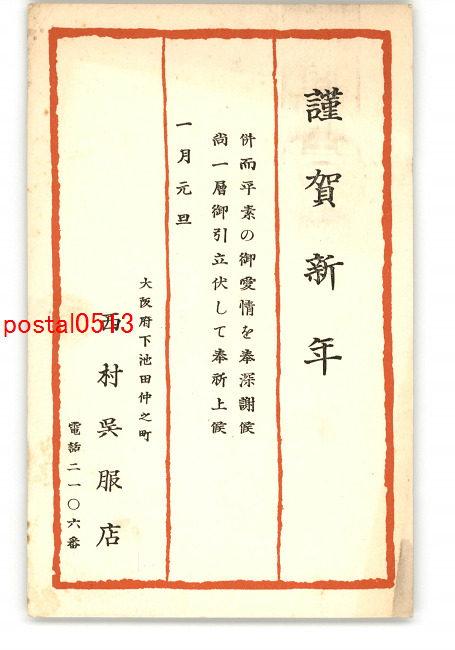 謹賀新年
併而平素の御愛情を奉深謝候
尚一層御引立伏して奉祈上候
一月元旦
大阪府下池田仲之町
西村呉服店
電話二一〇六番
postal0513